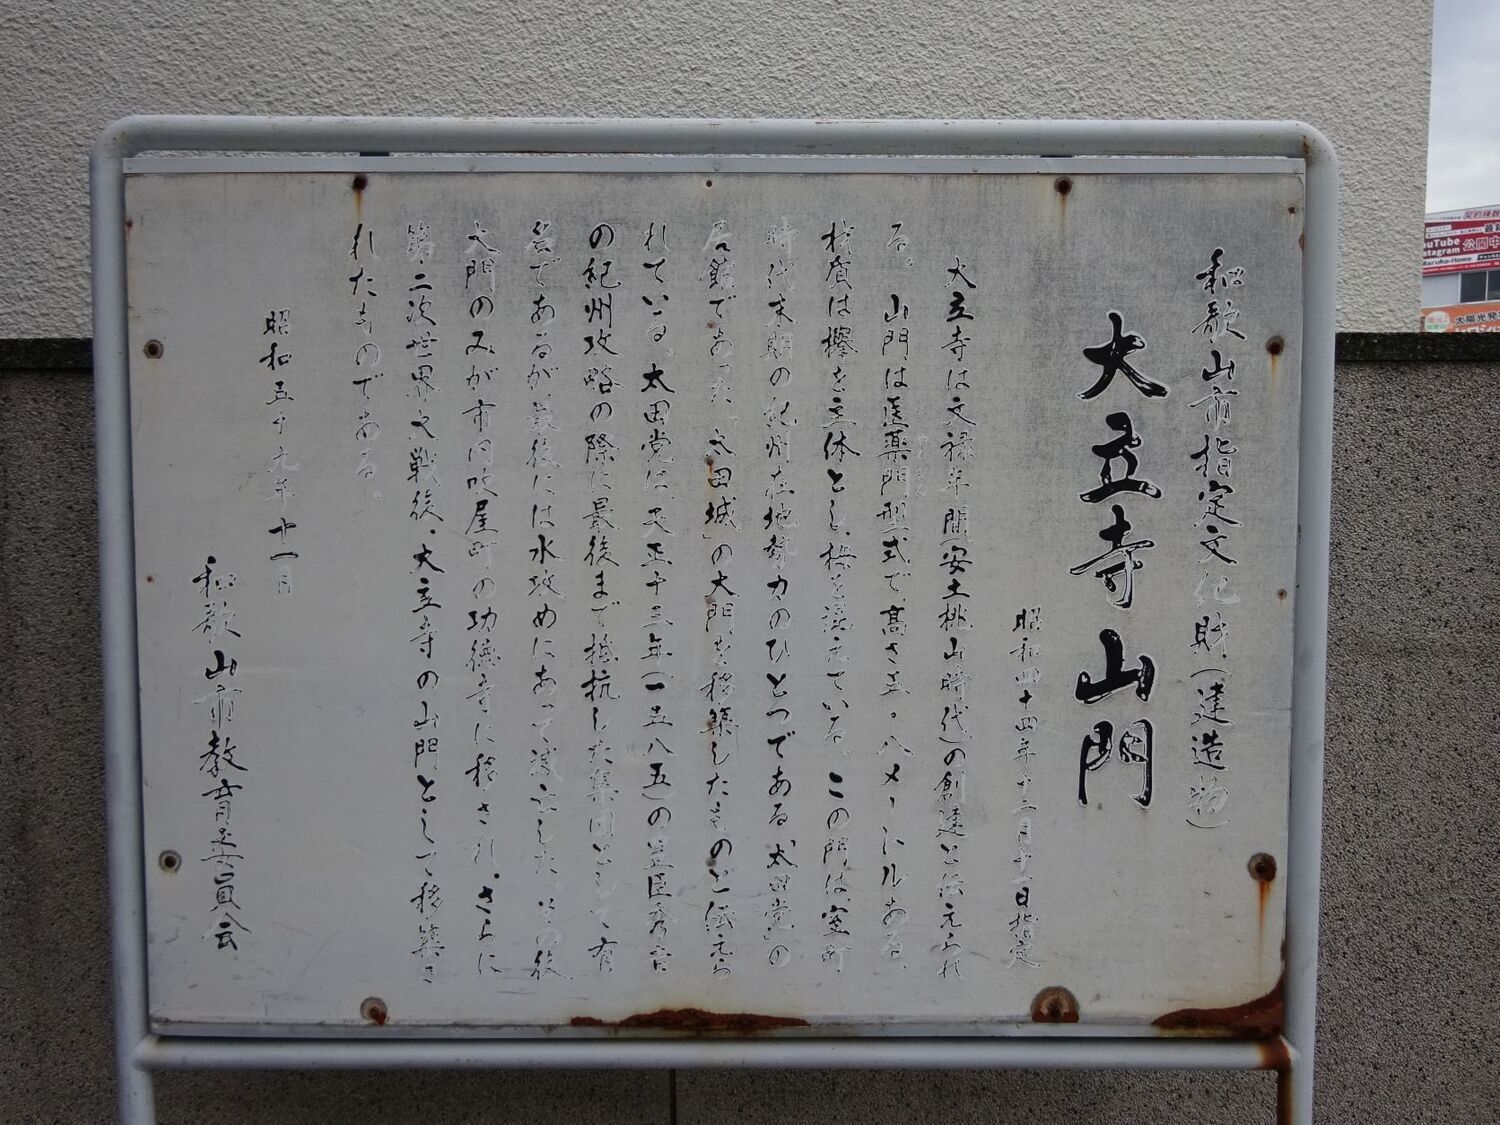 和歌山市指定文化財(建造物)
大立寺山門
昭和四十四年十二月十一日指定
大立寺は文禄年間(安土桃山時代)の創建と伝えられ
る。山門は医薬門型式で、高さ五・八メートルある。
やくいもん
材質は欅を主体とし、樅を混えている。この門は、室町
時代末期の紀州在地勢力のひとつである「太田党」の
居館であった「太田城」の大門を移築したものと伝えら
れている。太田党は、天正十三年(一五八五)の豊臣秀吉
の紀州攻略の際に最後まで抵抗した集団として有
名であるが、最後には水攻めにあって滅亡した。その後
大門のみが市内吹屋町の功徳寺に移され、さらに
第二次世界大戦後、大立寺の山門として移築さ
れたものである。
昭和五十九年十一月
和歌山市教育委員会
YouTube
公開中
Maruko-Home
太陽光発